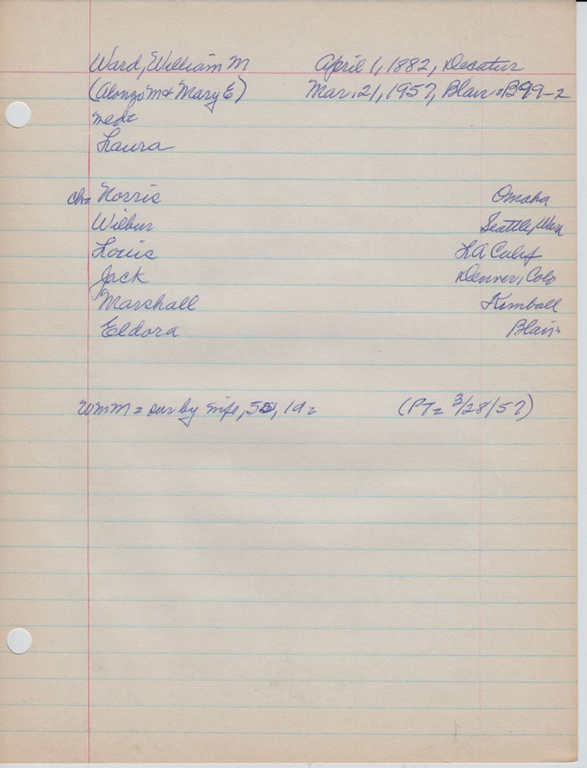 Ward, William M April 1, 1882, Decatur
(Alonzo M + Mary E) Mar. 21, 1957, Blair = B99-2
med=
Laura
ch= Norris Omaha
Wilbur Seattle, Wash
Louis LA Calif
Jack Denver, Colo
Marshall Kimball
Eldora Blair
WmM = sur by wife, 5s, 1d = (PT= 3/28/57)